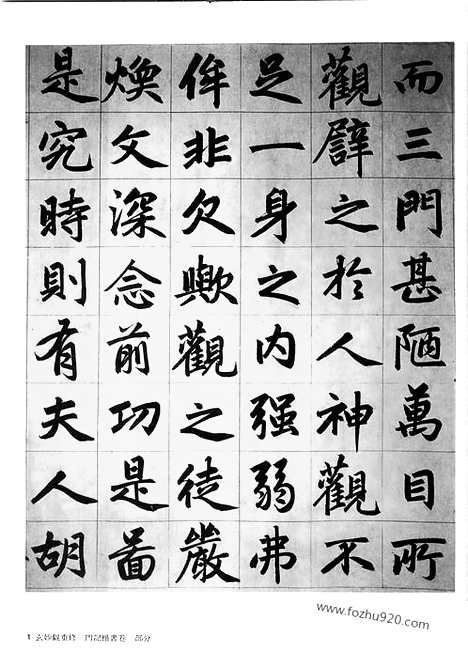 而三門甚陋萬目所
觀譬之於人神觀不
足一身之内强弱弗
侔非欠歟觀之徒嚴
煥文深念前功是啚
是究時則有夫人胡
www.fozhu920.com
1 玄妙觀重修三門記楷書卷 部分